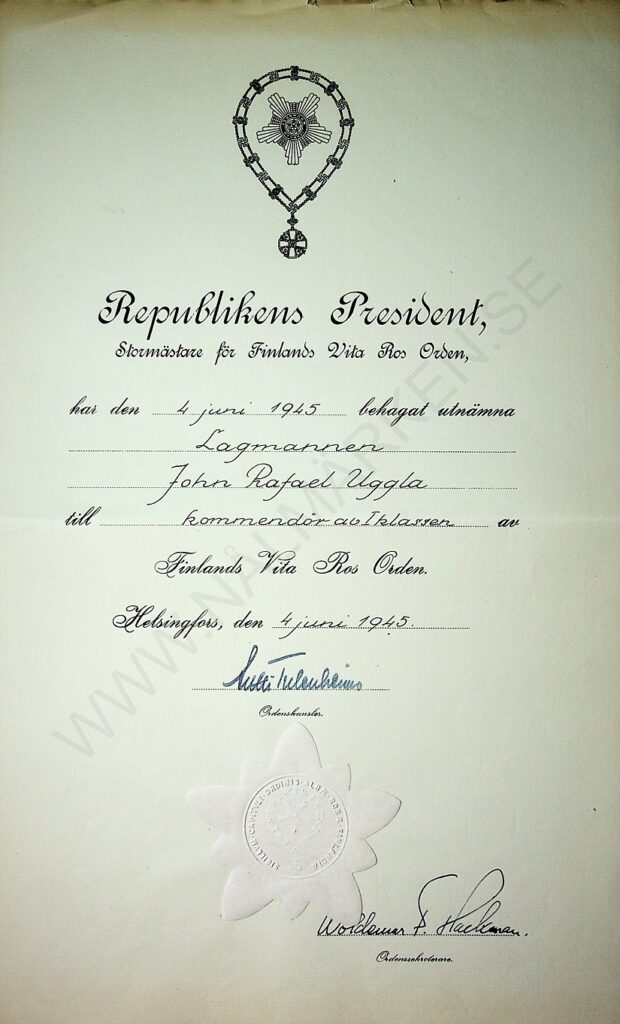 Republikens President,
Stormästare för Finlands Vita Ros Orden,
har den 4 juni 1945 behagat utnämna
Lagmannen
John Rafael Uggla
till kommendör av I klassen av
Finlands Vita Ros Orden.
Helsingfors, den 4 juni 1945.
Antti Tulenheimo
Ordenskansler.
SIGILLVM·CAPITVLI·ORDINIS·ALBÆ·ROSÆ·FINLANDIÆ
Woldemar F. Hackman.
Ordenssekreterare.
WWW.NÅLMÄRKEN.SE